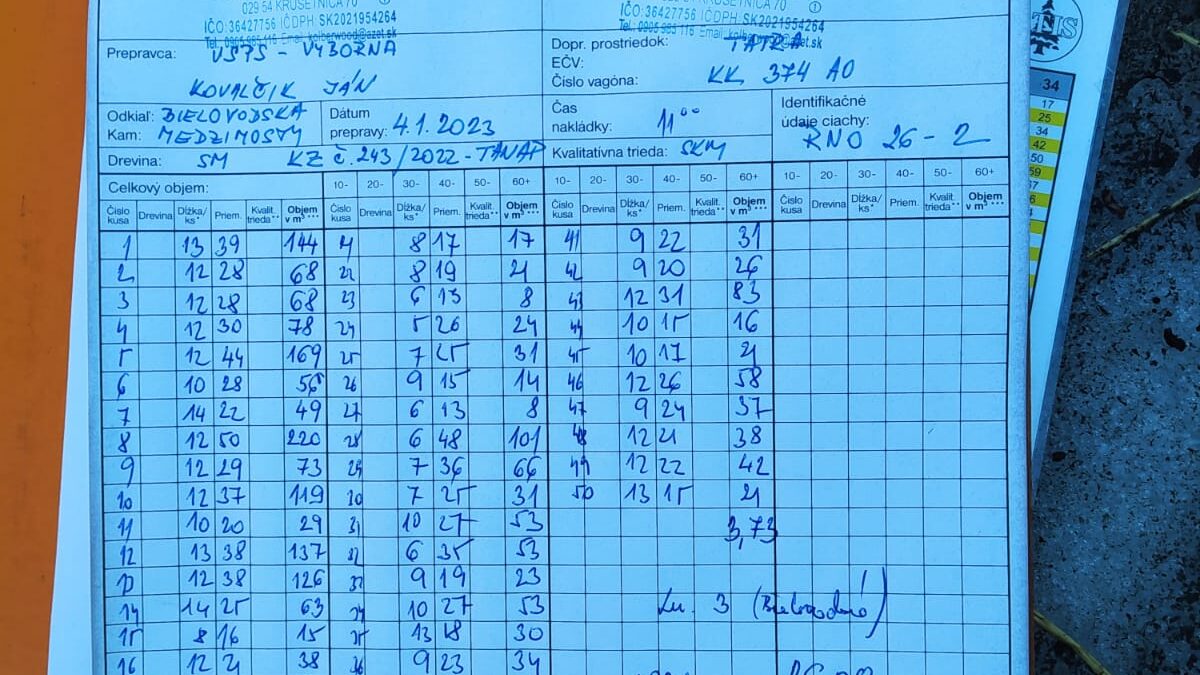 029 54 KRUŠETNICA 70
IČO:36427756 IČDPH: SK2021954264
Tel.: 0905 985 116 Email: kolberwood@azet.sk
IČO:36427756 IČDPH: SK2021954264
Tel.: 0905 985 116 Email: kolberwood@azet.sk
Prepravca: VSPS - VÝBORNÁ
KOVALČIK JÁN
Dopr. prostriedok: TATRA
EČV:
Číslo vagóna: KK 374 AO
Odkiaľ: BIELOVODSKA
Kam: MEDZIMOSTY
Dátum
prepravy: 4.1.2023
Čas
nakládky: 11⁰⁰
Identifikačné
údaje ciachy:
RNO 26-2
Drevina: SM KZ č.243/2022-TANAP
Kvalitatívna trieda: SKM
Celkový objem: 10- 20- 30- 40- 50- 60+ 10- 20- 30- 40- 50- 60+ 10- 20- 30- 40- 50- 60+
Číslo kusa Drevina Dĺžka/ks* Priem. Kvalit. trieda** Objem v m³*** Číslo kusa Drevina Dĺžka/ks* Priem. Kvalit. trieda** Objem v m³*** Číslo kusa Drevina Dĺžka/ks* Priem. Kvalit. trieda** Objem v m³*** Číslo kusa Drevina Dĺžka/ks* Priem. Kvalit. trieda** Objem v m³***
1 13 39 144 21 8 17 17 41 9 22 31
2 12 28 68 22 8 19 21 42 9 20 26
3 12 28 68 23 6 13 8 43 12 31 83
4 12 30 78 24 5 26 24 44 10 15 16
5 12 44 169 25 7 25 31 45 10 17 21
6 10 28 56 26 9 15 14 46 12 26 58
7 14 22 49 27 6 13 8 47 9 24 37
8 12 50 220 28 6 48 101 48 12 21 38
9 12 29 73 29 7 36 66 49 12 22 42
10 12 37 119 30 7 25 31 50 13 15 21
11 10 20 29 31 10 27 53 3,73
12 13 38 137 32 6 35 53
13 12 38 126 33 9 19 23
14 14 25 63 34 10 27 53 3
15 8 16 15 35 13 18 30
16 12 21 38 36 9 23 34
34
17
25
34
42
50
59